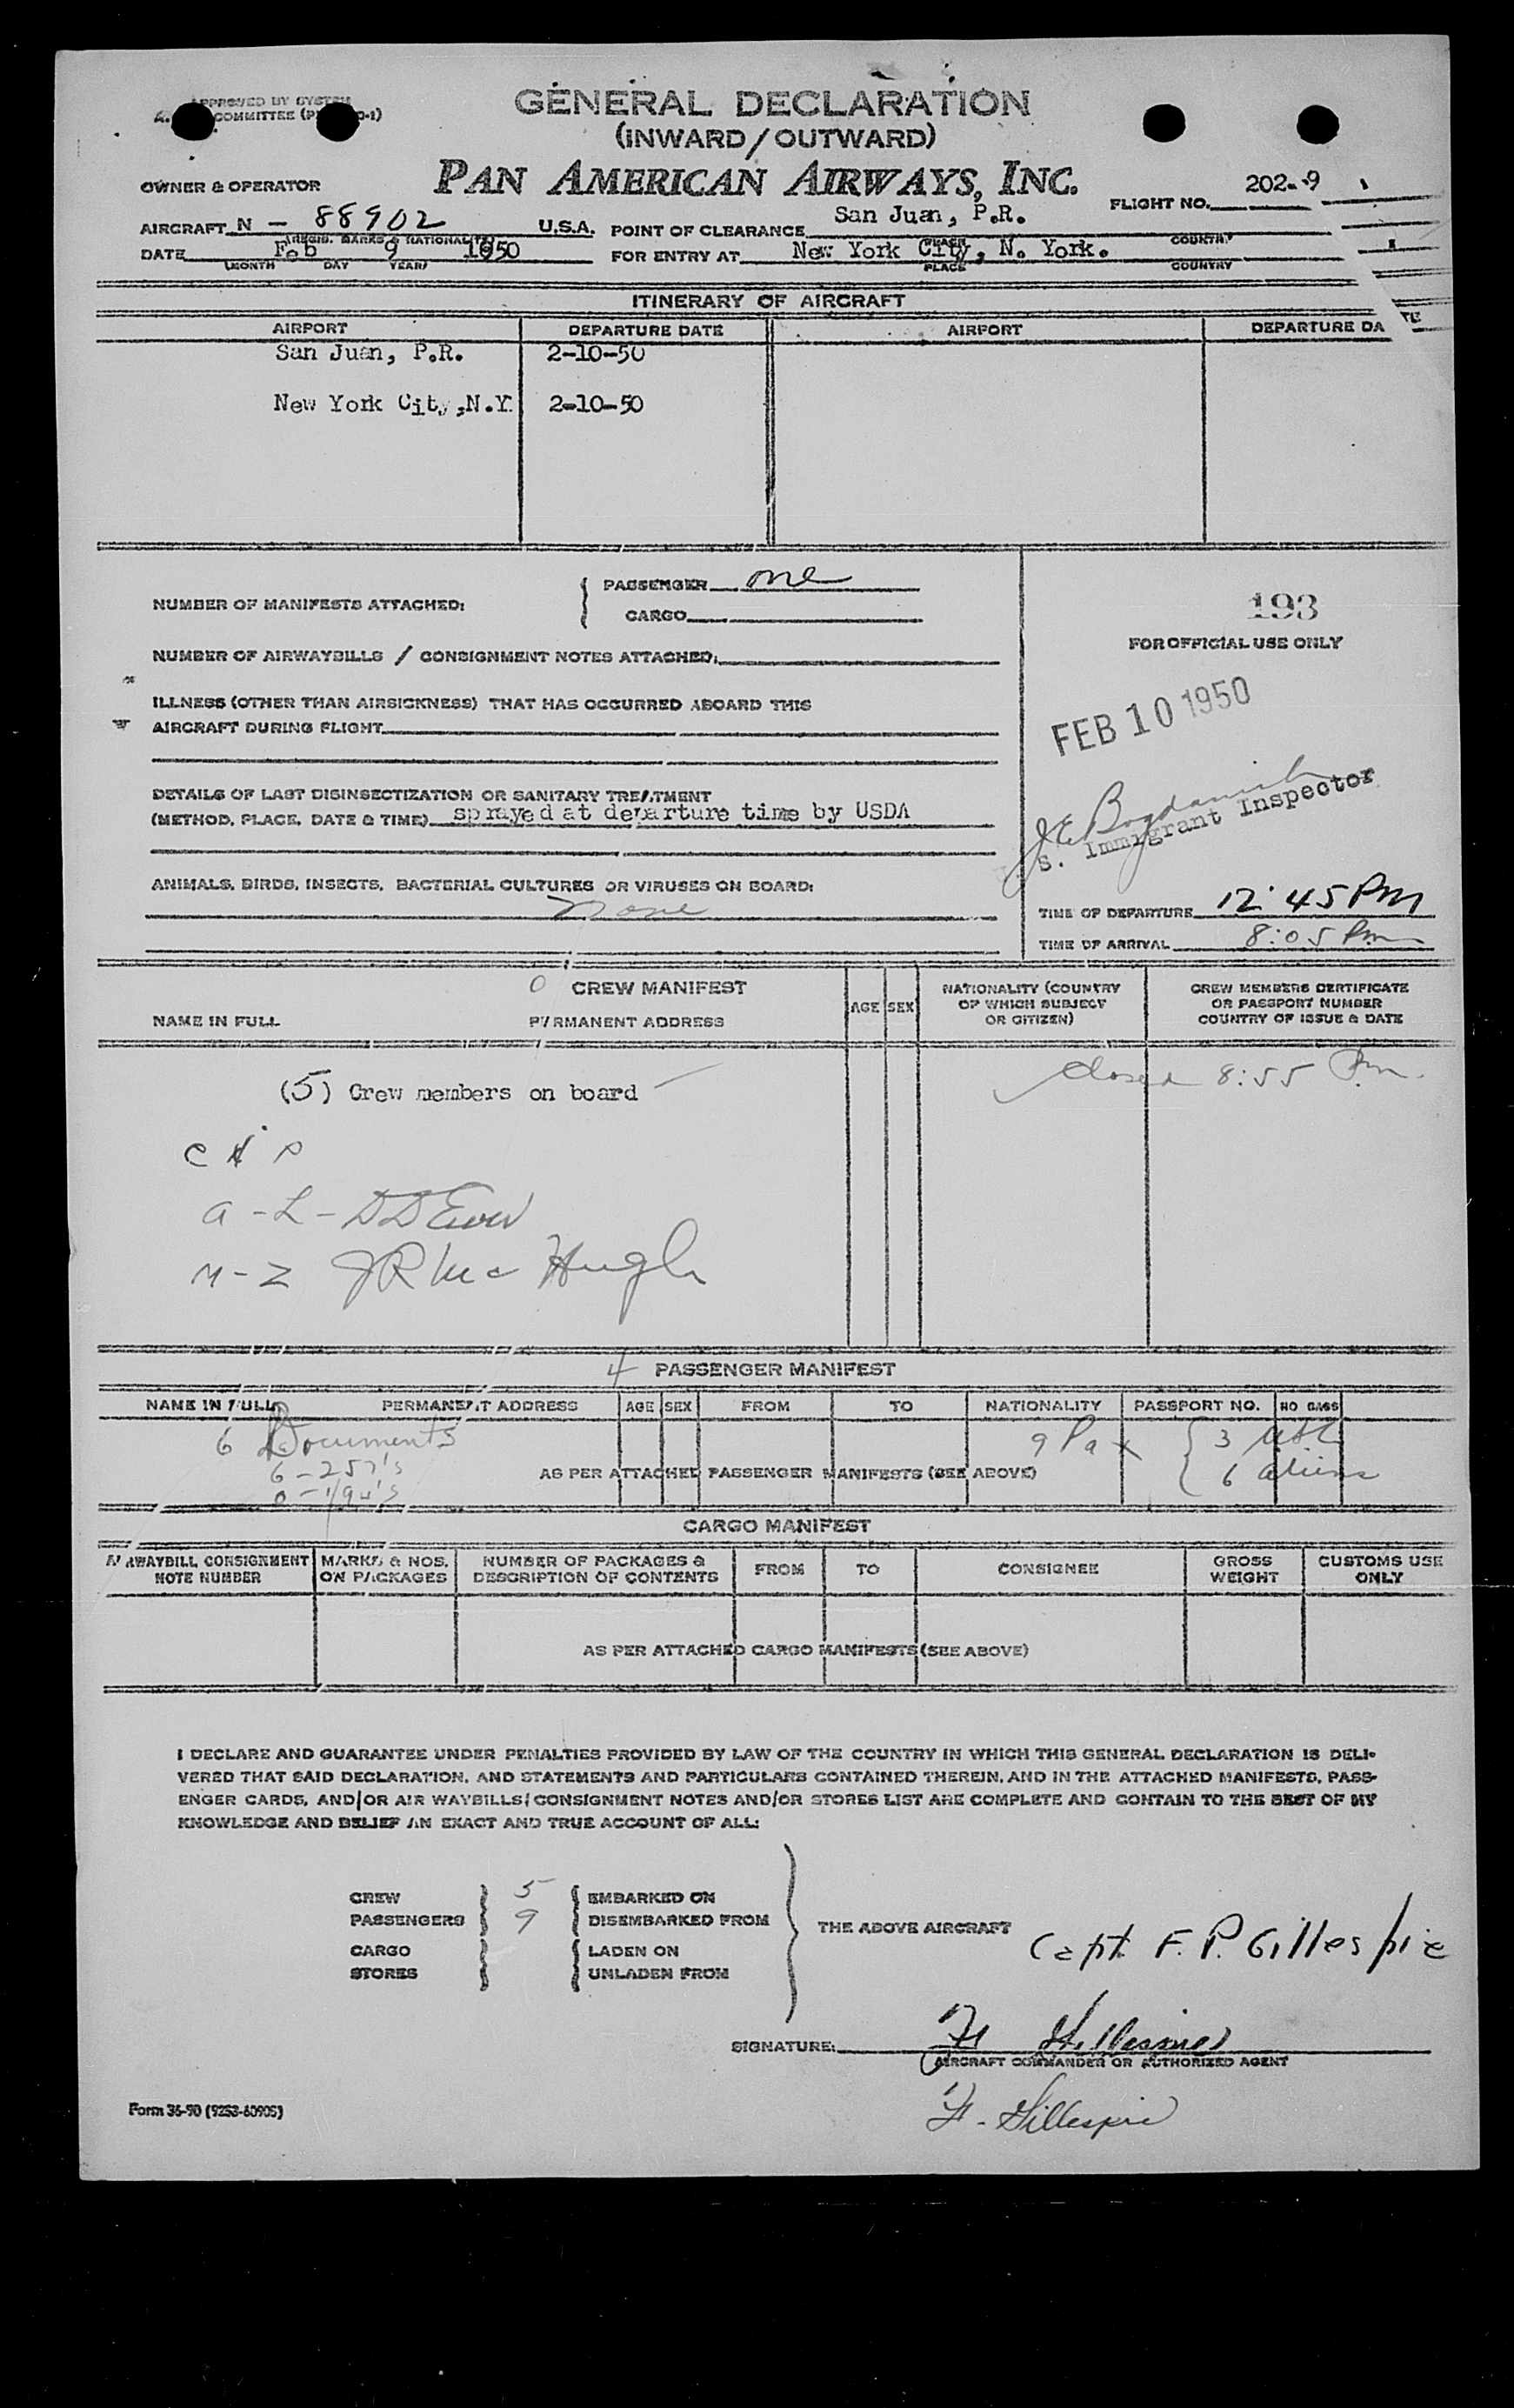 APPROVED BY SYSTEM
COMMITTEE
GENERAL DECLARATION
(INWARD/OUTWARD)
PAN AMERICAN AIRWAYS, INC.
OWNER & OPERATOR
FLIGHT NO. 202-9
AIRCRAFT N - 88902 U.S.A. POINT OF CLEARANCE San Juan, P.R.
(REGIS. MARKS & NATIONALITY) PLACE COUNTRY
DATE Feb 9 1950 FOR ENTRY AT New York City, N. York.
(MONTH DAY YEAR) PLACE COUNTRY
ITINERARY OF AIRCRAFT
AIRPORT DEPARTURE DATE AIRPORT DEPARTURE DA TE
San Juan, P.R. 2-10-50
New York City,N.Y. 2-10-50
NUMBER OF MANIFESTS ATTACHED: PASSENGER one
CARGO
193
FOR OFFICIAL USE ONLY
NUMBER OF AIRWAYBILLS / CONSIGNMENT NOTES ATTACHED:
ILLNESS (OTHER THAN AIRSICKNESS) THAT HAS OCCURRED ABOARD THIS
AIRCRAFT DURING FLIGHT
FEB 10 1950
DETAILS OF LAST DISINSECTIZATION OR SANITARY TREATMENT
(METHOD, PLACE, DATE & TIME) sprayed at departure time by USDA
S. Immigrant Inspector
ANIMALS, BIRDS, INSECTS, BACTERIAL CULTURES OR VIRUSES ON BOARD:
None
TIME OF DEPARTURE 12:45 PM
TIME OF ARRIVAL 8:05 Pm
0 CREW MANIFEST
NAME IN FULL PERMANENT ADDRESS AGE SEX NATIONALITY (COUNTRY OF WHICH SUBJECT OR CITIZEN) CREW MEMBERS CERTIFICATE OR PASSPORT NUMBER COUNTRY OF ISSUE & DATE
Closed 8:55 Pm.
(5) Crew members on board
a - L - DD
M - Z JR McHugh
4 PASSENGER MANIFEST
NAME IN FULL PERMANENT ADDRESS AGE SEX FROM TO NATIONALITY PASSPORT NO. NO BAGS
6 Documents 9 Pax 3
6 - 257's AS PER ATTACHED PASSENGER MANIFESTS (SEE ABOVE) 6 aliens
CARGO MANIFEST
AIRWAYBILL CONSIGNMENT NOTE NUMBER MARKS & NOS. ON PACKAGES NUMBER OF PACKAGES & DESCRIPTION OF CONTENTS FROM TO CONSIGNEE GROSS WEIGHT CUSTOMS USE ONLY
AS PER ATTACHED CARGO MANIFESTS (SEE ABOVE)
I DECLARE AND GUARANTEE UNDER PENALTIES PROVIDED BY LAW OF THE COUNTRY IN WHICH THIS GENERAL DECLARATION IS DELI-
VERED THAT SAID DECLARATION, AND STATEMENTS AND PARTICULARS CONTAINED THEREIN, AND IN THE ATTACHED MANIFESTS, PASS-
ENGER CARDS, AND/OR AIR WAYBILLS/CONSIGNMENT NOTES AND/OR STORES LIST ARE COMPLETE AND CONTAIN TO THE BEST OF MY
KNOWLEDGE AND BELIEF AN EXACT AND TRUE ACCOUNT OF ALL:
CREW 5 EMBARKED ON
PASSENGERS 9 DISEMBARKED FROM
THE ABOVE AIRCRAFT Capt. F. P. Gillespie
CARGO LADEN ON
STORES UNLADEN FROM
SIGNATURE: F Gillespie
AIRCRAFT COMMANDER OR AUTHORIZED AGENT
F. Gillespie
Form 36-90 (9253-6090S)